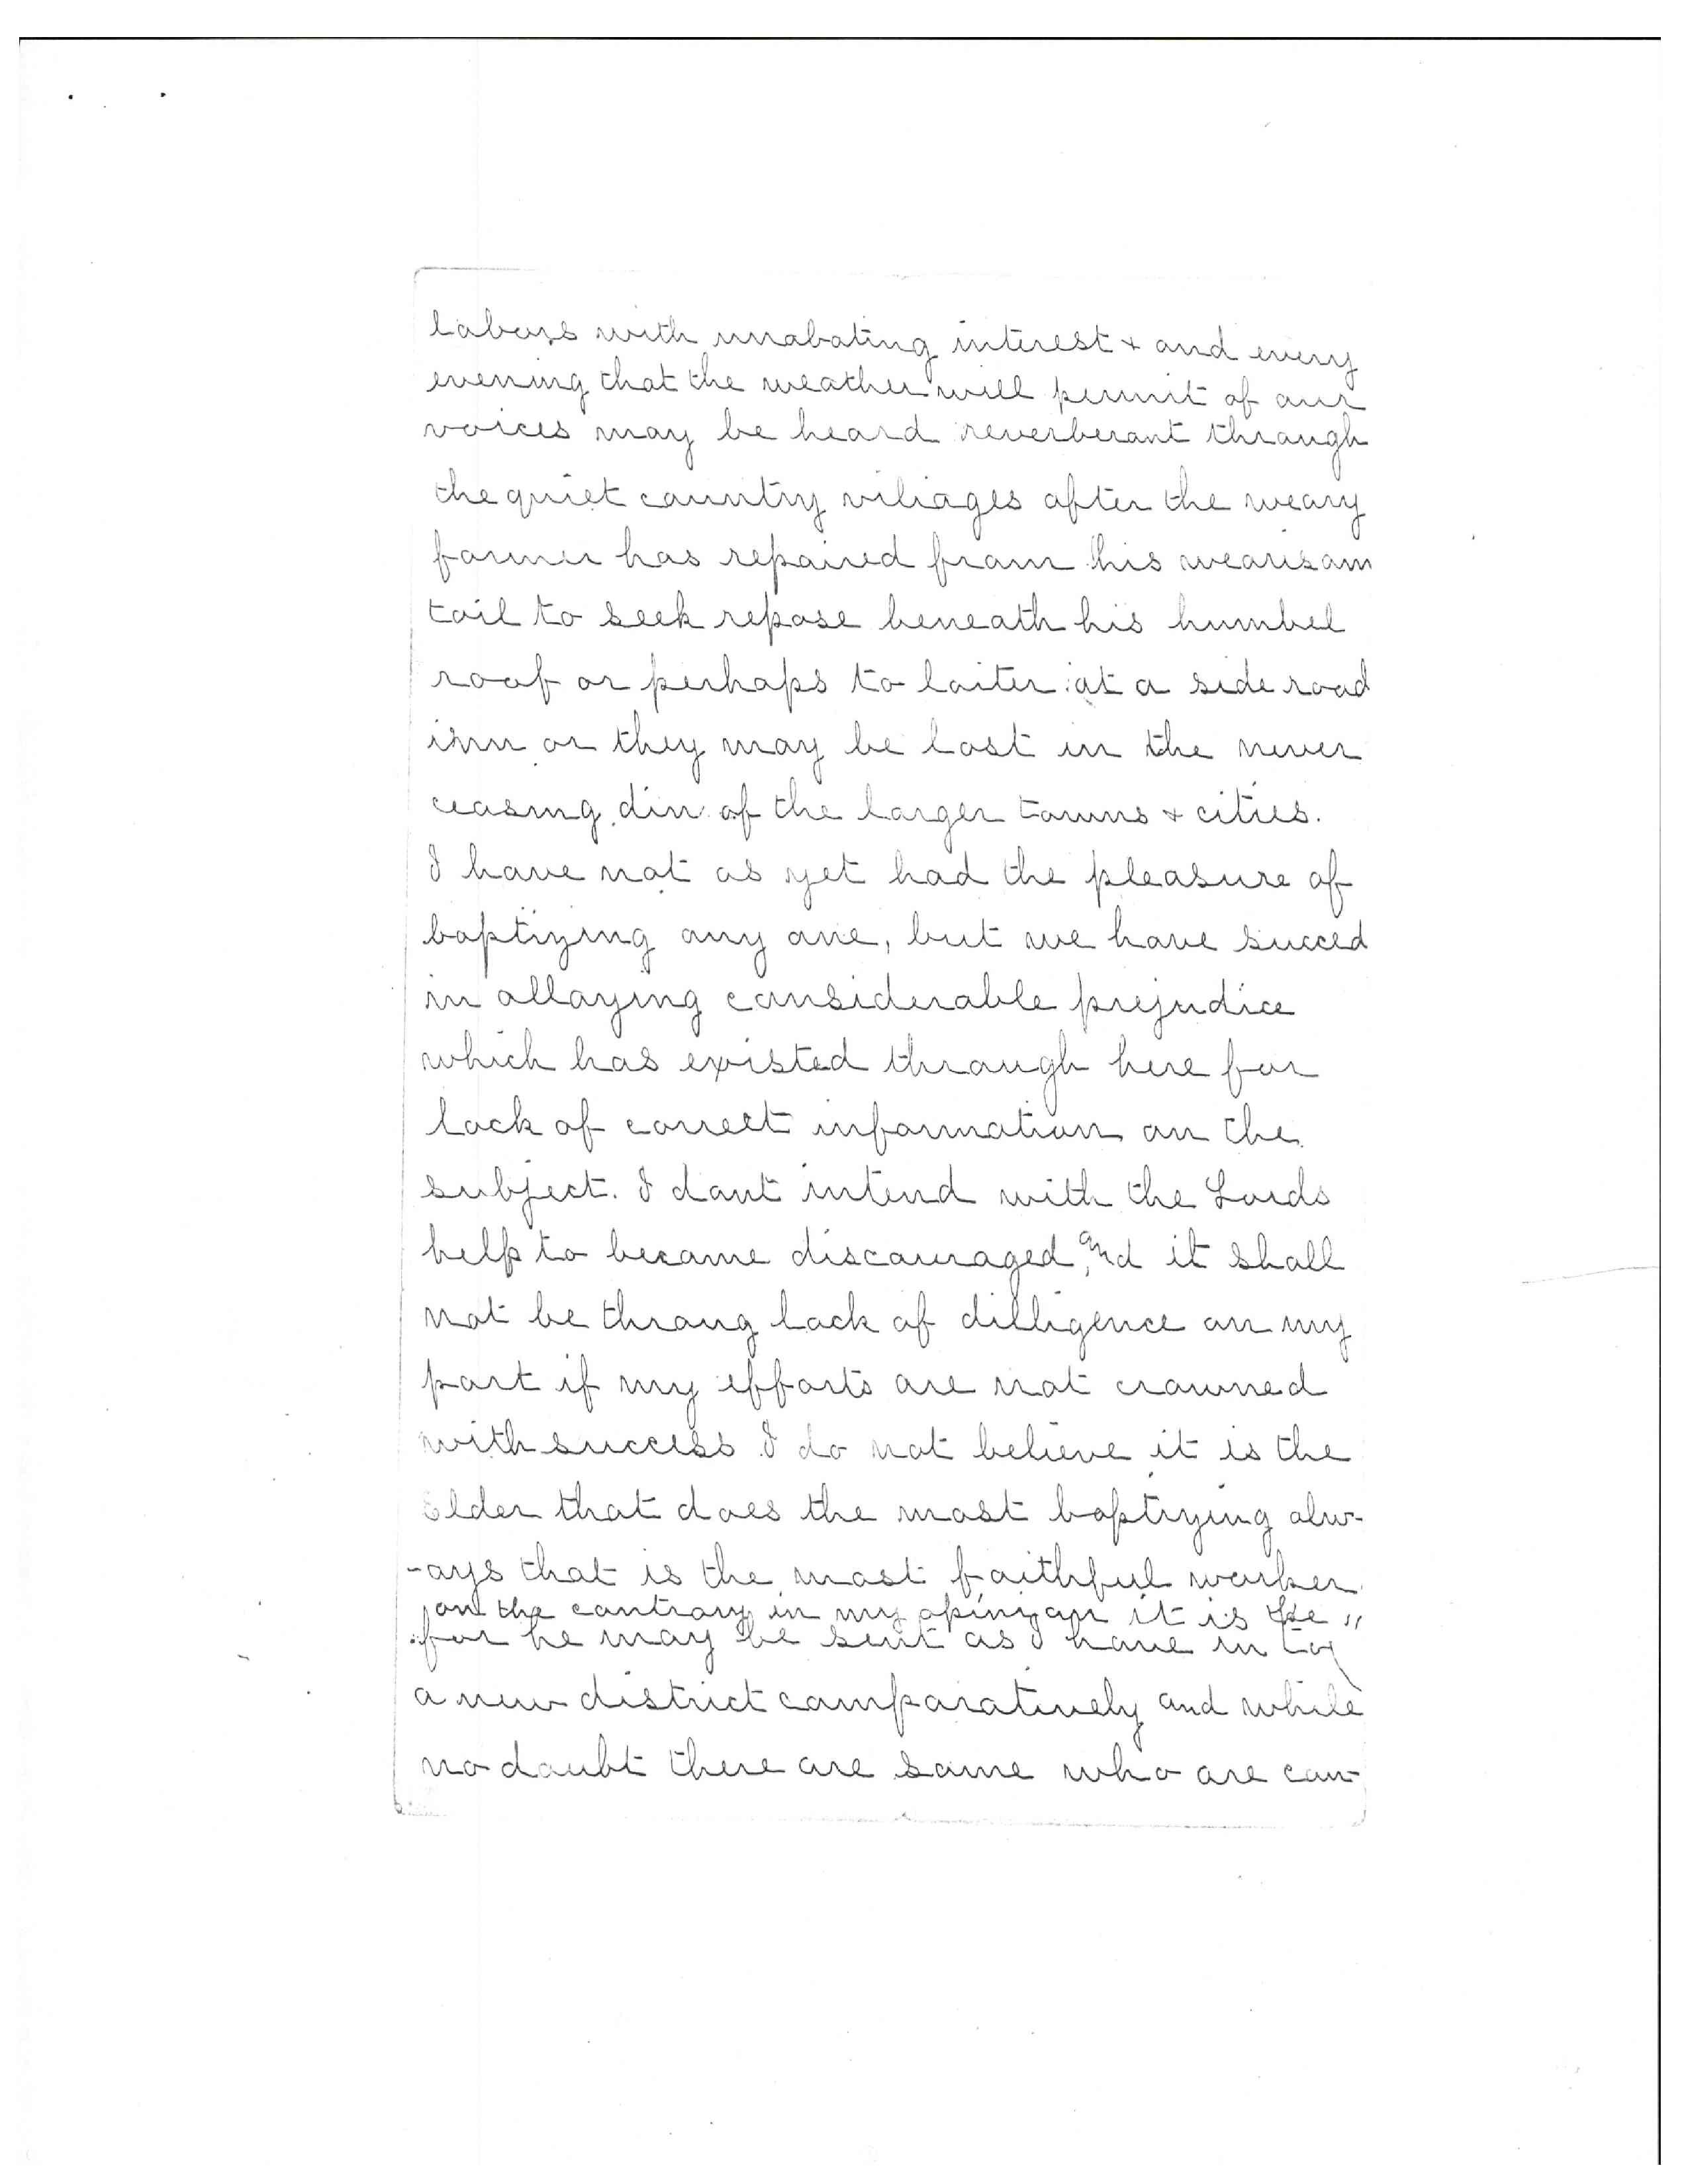 labors with unabating interest + and every
evening that the weather will permit of our
voices may be heard reverberant through
the quiet country villages after the weary
farmer has repaired from his wearisom
toil to seek repose beneath his humbel
roof or perhaps to loiter at a side road
inn or they may be lost in the never
ceasing din of the larger towns + cities.
I have not as yet had the pleasure of
baptizing any one, but we have succed
in allaying considerable prejudice
which has existed through here for
lack of correct information on the
subject. I dont intend with the Lords
help to become discouraged, and it shall
not be throug lack of dilligence on my
part if my efforts are not crowned
with success I do not believe it is the
elder that does the most baptizing alw-
-ays that is the most faithful worker
on the contrary in my opinyon it is the "
for he may be sent as I have in to
a new district comparatively and while
no doubt there are some who are con-